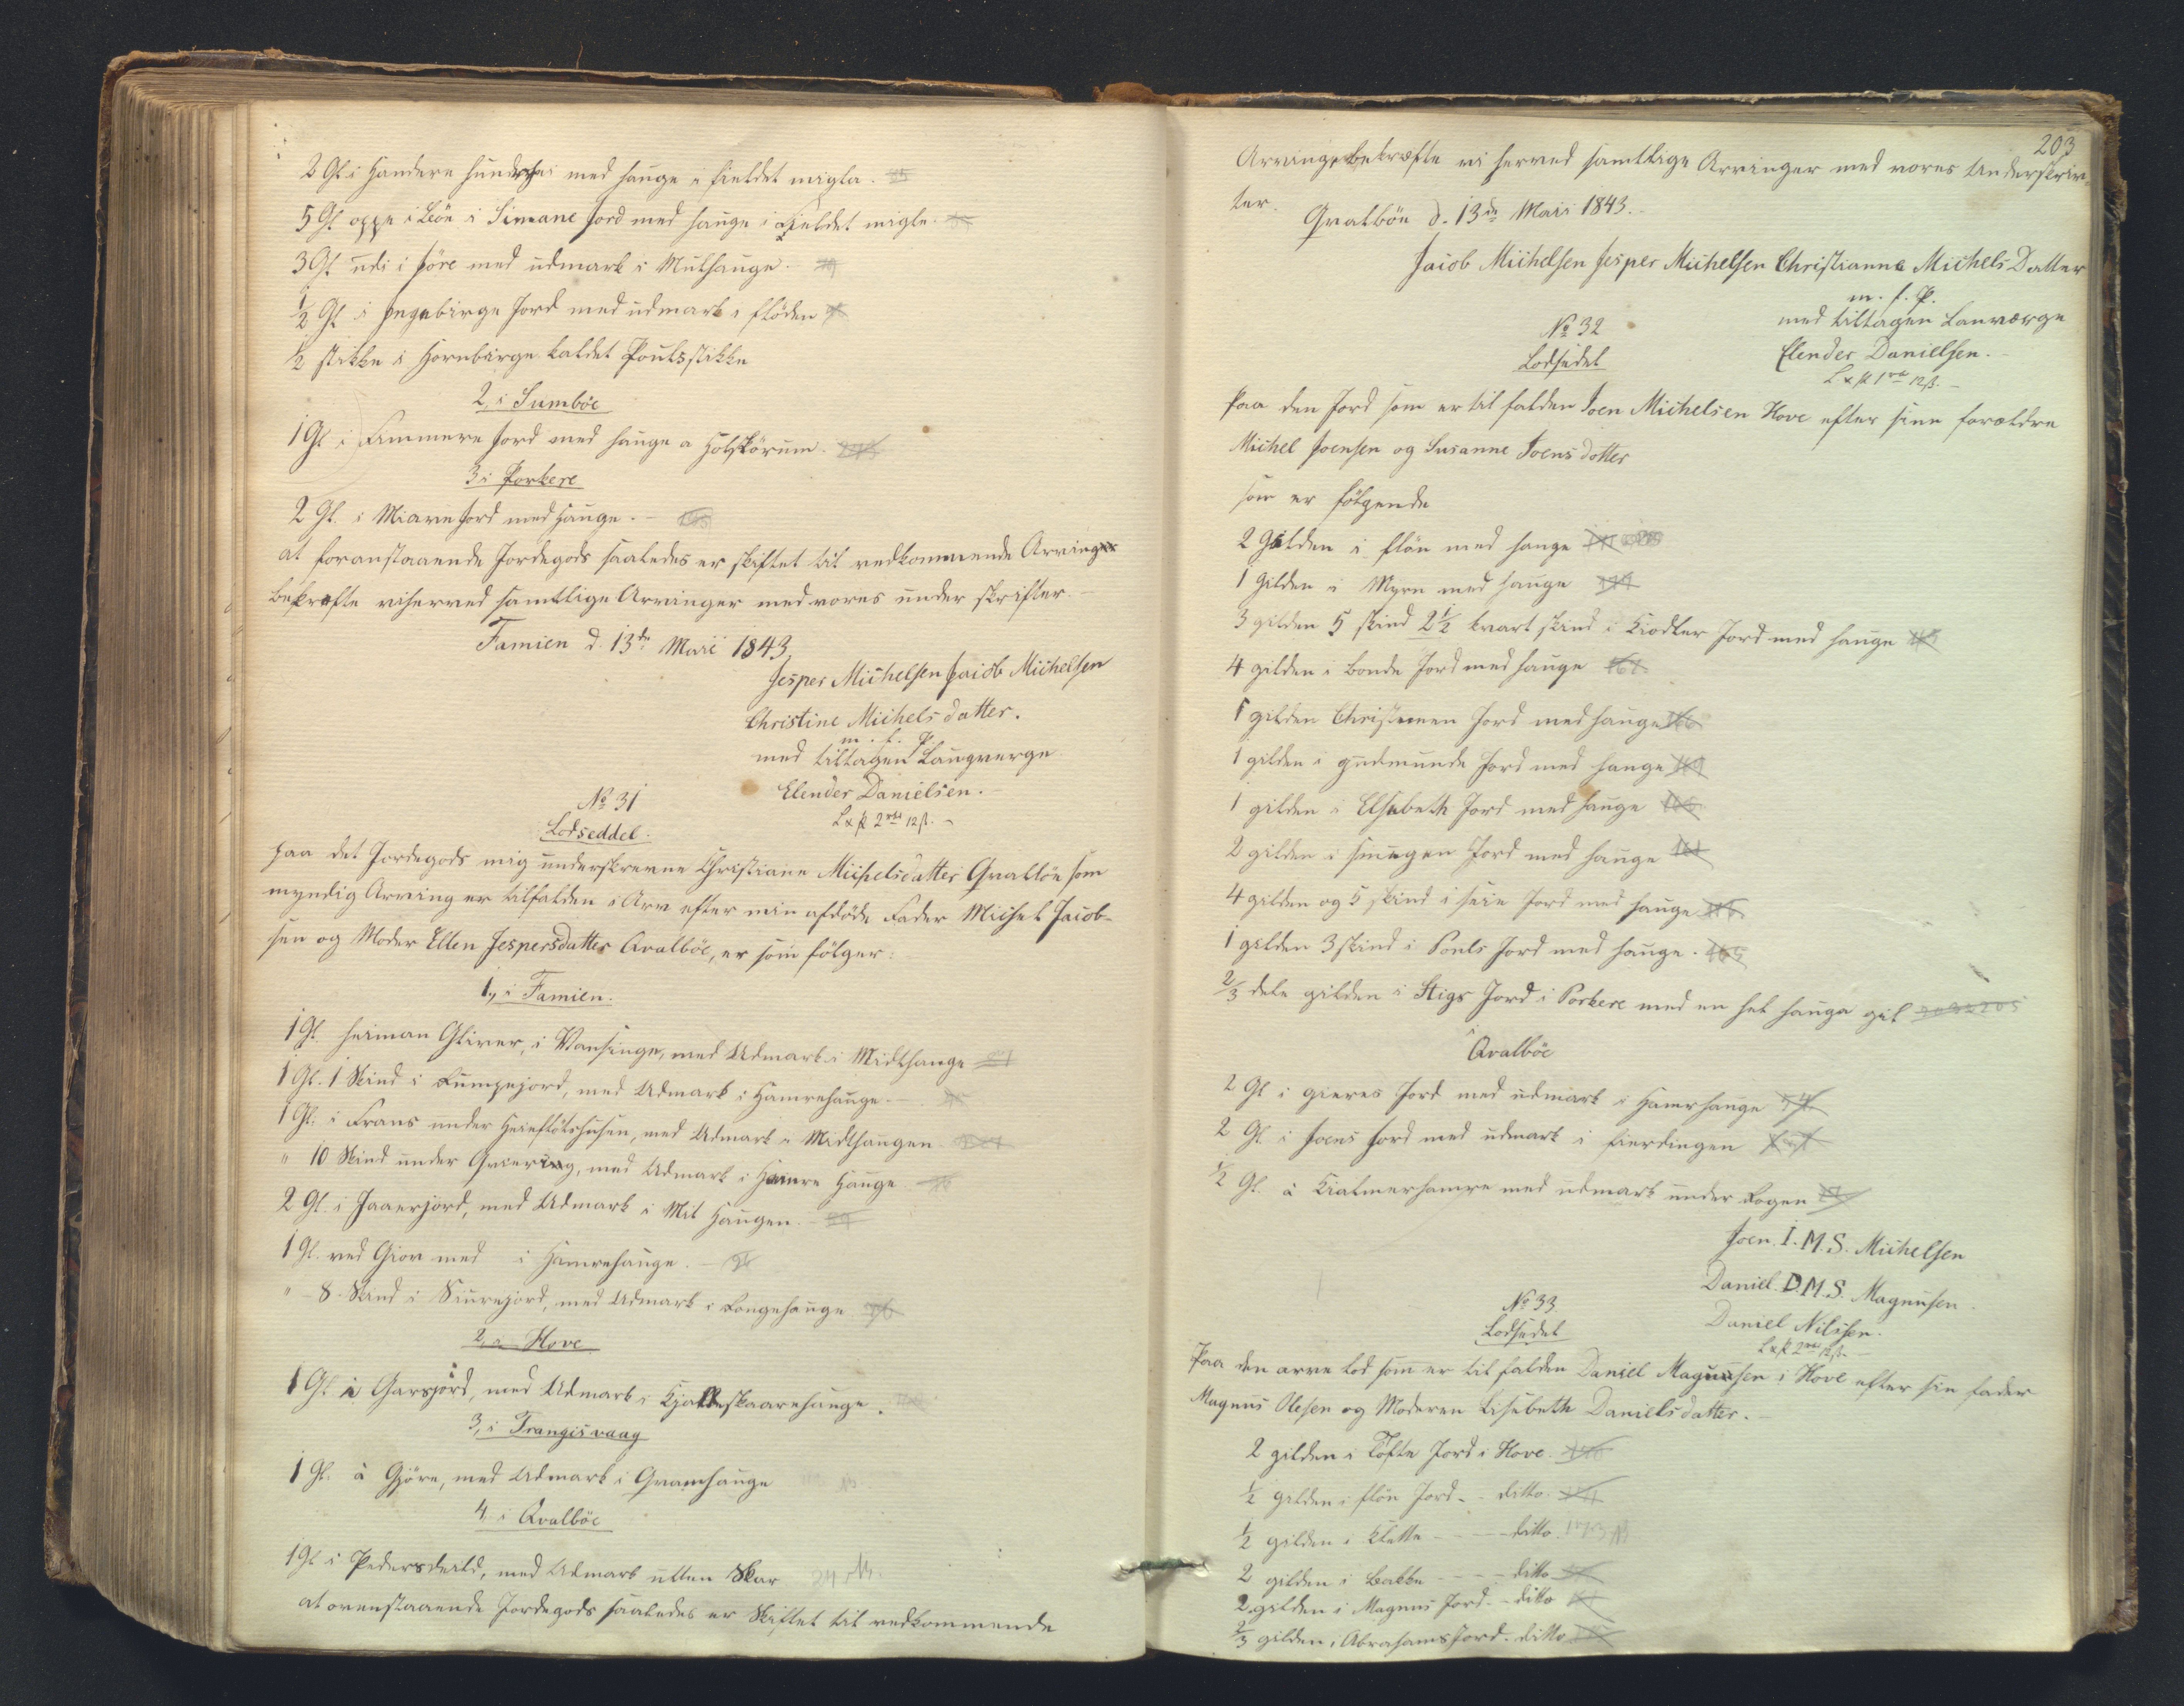 2 Gl i Handere hunds med hauge a fieldet migla.
5 Gl oppe i Böe i Simane Jord med hauge i fieldet migle.
3 Gl udi i Höre med udmark i Midhauge.
1/2 Gl i Ingebirge Jord med udmark i flöden
1/2 stikke i Hornbirge kaldet Poulsstikke
2, i Sumböe
1 Gl i Ammere Jord med hauge a Holskörum.
3 i Porkere
2 Gl. i Miare Jord med Hauge. —
at foranstaaende Jordegods saaledes er skiftet til vedkommende Arvinger
bekræfte vi herved samtlige Arvinger med vores under skrifter. —
Famien d. 13de Maii 1843.
Jesper Michelsen Jacob Michelsen
Christine Michelsdatter.
m. f. P.
med tiltagen Laugverge
Elender Danielsen. —
No 31
L x st 2 rbd 12 s. —
Lodseddel.
paa det Jordegods mig underskrevne Christiane Michelsdatter Qvalböe som
myndig Arving er tilfalden i Arv efter min afdöde Fader Michel Jacob-
sen og Moder Ellen Jespersdatter Qvalböe, er som fölger:
1, i Famien.
1 Gl. heiman Gliver, i Vansinge, med Udmark i Midlhauge
1 Gl. 1 Skind i Lumpejord, med Udmark i Hamrehauge. —
1 Gl. i Frans under Heiefletshusen, med Udmark i Midlhaugen
" 10 Skind under Qviering, med Udmark i Hamre Hauge
2 Gl. i Jaaerjord, med Udmark i Mit Haugen. —
1 Gl. ved Giov med i Hamrehauge. —
" — 8. Skind i Siurejord, med Udmark i Longehauge 76
2, a Hove
1 Gl i Garsjord, med Udmark i Kjolleskaarehauge.
3, i Trangisvaag
1 Gl. à Gjöre, med Udmark i Gramhauge
4. i Qvalböe
1 Gl i Pedersdeild, med Udmark utten Skar 24
at ovenstaaende Jordegods saaledes er Skiftet til vedkommende
203
Arvinger bekræfte vi herved samtlige Arvinger med vores Underskriv-
ter.
Qvalböe d. 13de Maii 1843. —
Jacob Michelsen Jesper Michelsen Christianne Michels Datter
m. f. P.
med tiltagen Lauværge
Elender Danielsen. —
L x st 1 rbd 12 s. —
No 32
Lodsedel
Paa den Jord som er til falden Joen Michelsen Hove efter sine forældre
Michel Joensen og Susanne Joensdotter
som er fölgende
2 Gilden i flöe med hauge
1 Gilden i Myre med hauge
3 gilden 5 skind 2 1/2 kvart skind i Kiodler Jord med hauge
4 gilden i bonde Jord med hauge
1 gilden Christinen Jord med hauge
1 gilden i gudmunde Jord med hauge
1 gilden i Elsebeth Jord med hauge
2 gilden i sinegen Jord med hauge
4 gilden og 5 skind i seie Jord med hauge
1 gilden 3 skind i Pouls Jord med hauge.
2/3 dele gilden i Stigs Jord i Porkere med en hel hauga gil 205
i
Qvalböe
2 Gl i gieres Jord med udmark i Hamrhauge
2 Gl. i Joens Jord med udmark i fierdingen
1/2 Gl. à Kialmerhamre med udmark under Rogen
Joen. I. M. S. Michelsen
Daniel. D. M. S. Magnusen.
Daniel Nilssen.
L x st 2 rbd 12 s. —
No 33
Lodsedel
Paa den arve lod som er til falden Daniel Magnusen i Hove efter sin fader
Magnus Olesen og Moderen Lisebeth Danielsdatter. —
2 gilden i Tofte Jord i Hove.
1/2 gilden i flöe Jord — ditto.
1/2 gilden i Klette — — — ditto. 173
2 gilden i Bakke — — — ditto
2. gilden i Magnus Jord. — ditto
2/3 gilden i Abrahams Jord. ditto